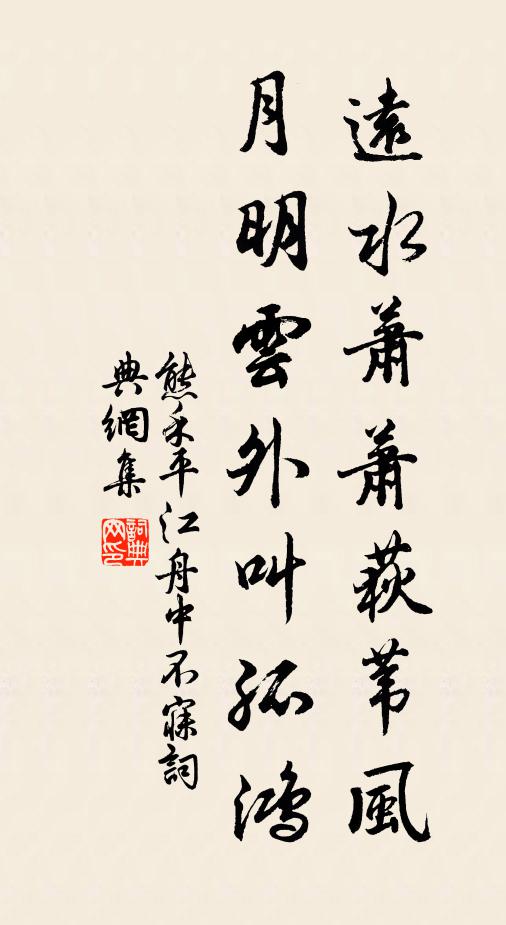 遠水蕭蕭荻葦風
月明雲外叫孤鴻
熊禾平江舟中不寐詞
典網集
詞典
网印